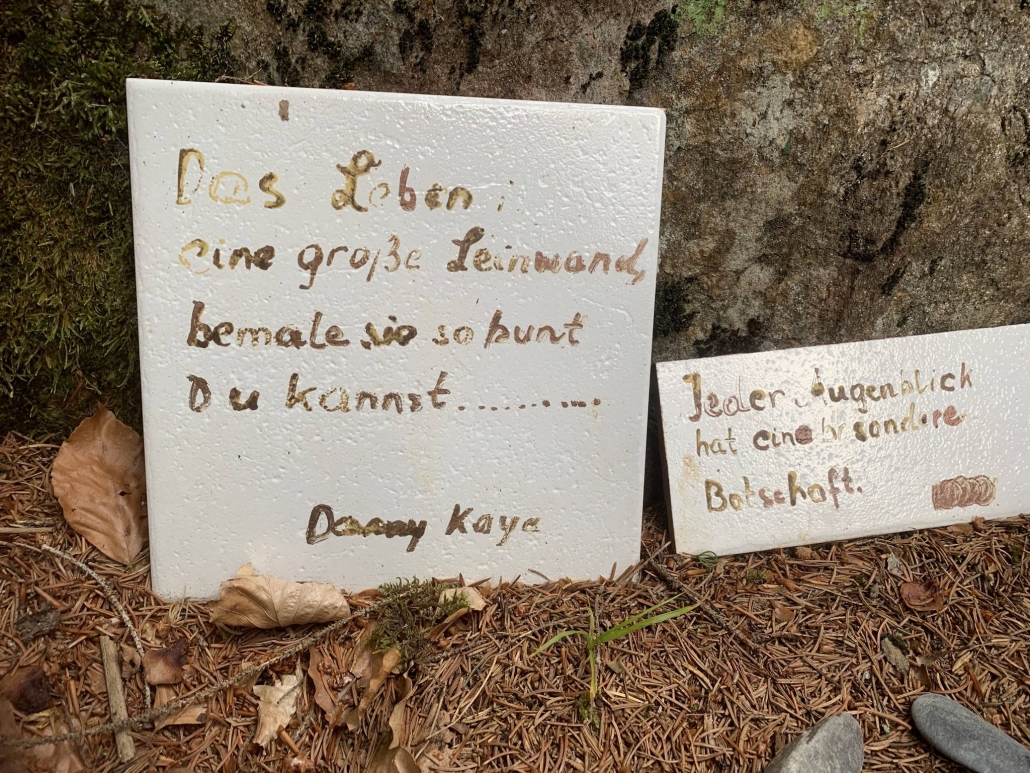 Das Leben :
eine große Leinwand,
bemale sie so bunt
Du kannst...........
Danny Kaye
Jeder Augenblick
hat eine besondere
Botschaft.